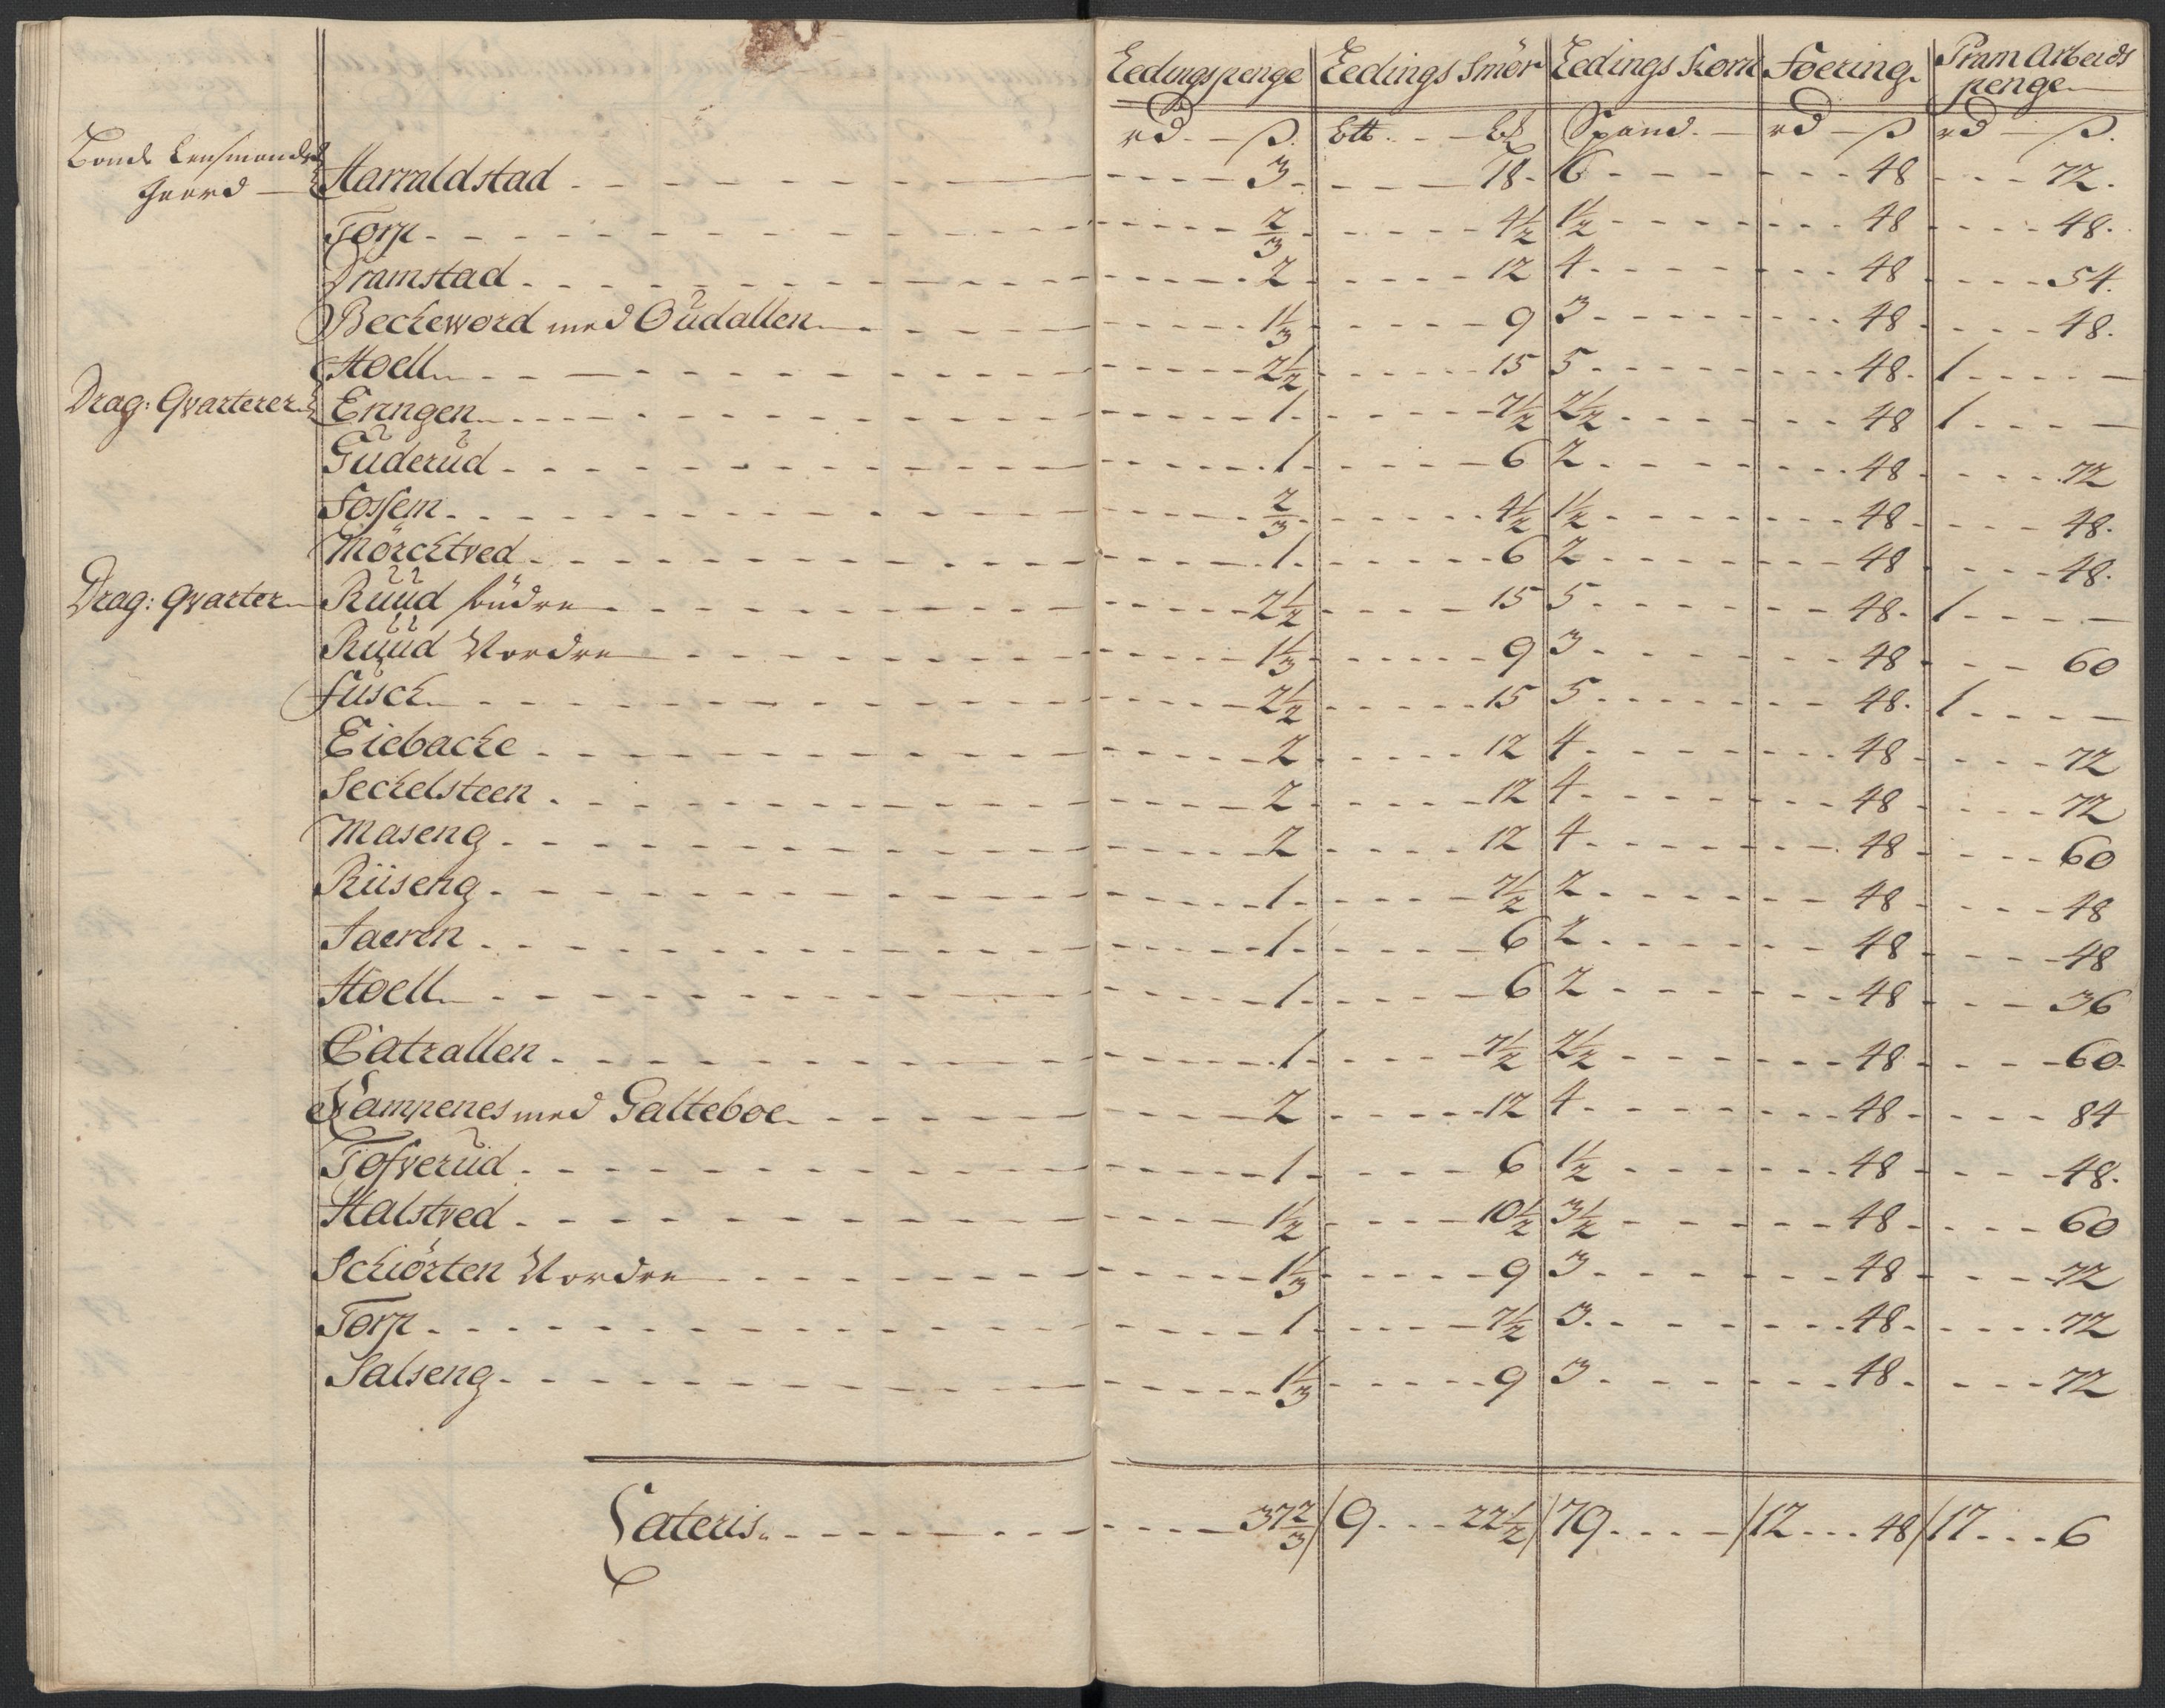 Ledingspenge Ledings Smör Ledings Korn Foering Pram Arbeids
penge
rd. ß. Spand. rd ß rd ß.
Bonde Lensmandens
Gaard Harraldstad 3 18 6 48 72.
Torp 2/3 4½ 1½ 48 48.
Dramstad 2 12 4 48 54.
Beckewold med Oudallen 1⅓ 9 3 48 48.
Hoell 2½ 15 5 48. 1
Drag: Qvarterer Eringen 1 7½ 2½ 48 1
Guderud 1 6 2 48 72
Fossem 2/3 4½ 1½ 48 48.
Mörchtved 1 6 2 48 48.
Drag: Qvarter Ruud söndre 2½ 15 5 48. 1
Ruud Nordre 1⅓ 9 3 48 60
Fusck 2½ 15 5 48. 1
Eiebacke 2 12 4 48 72
Seckelsteen 2 12 4 48 72
Maseng 2 12 4 48 60
Riiseng 1 7½ 2 48 48
Jaeren 1 6 2 48 48
Hoell 1 6 2 48 36
Catrallen 1 7½ 2½ 48 60
Kampenes med Galteboe 2 12 4 48 84
Tofverud 1 6 1½ 48 48.
Halstved 1½ 10½ 3½ 48 60
Schiörten Nordre 1⅓ 9 3 48 72
Torp 1 7½ 3 48 72
Salseng 1⅓ 9 3 48 72
Lateris 37⅔ 9 22½ 79 12 48 17 6